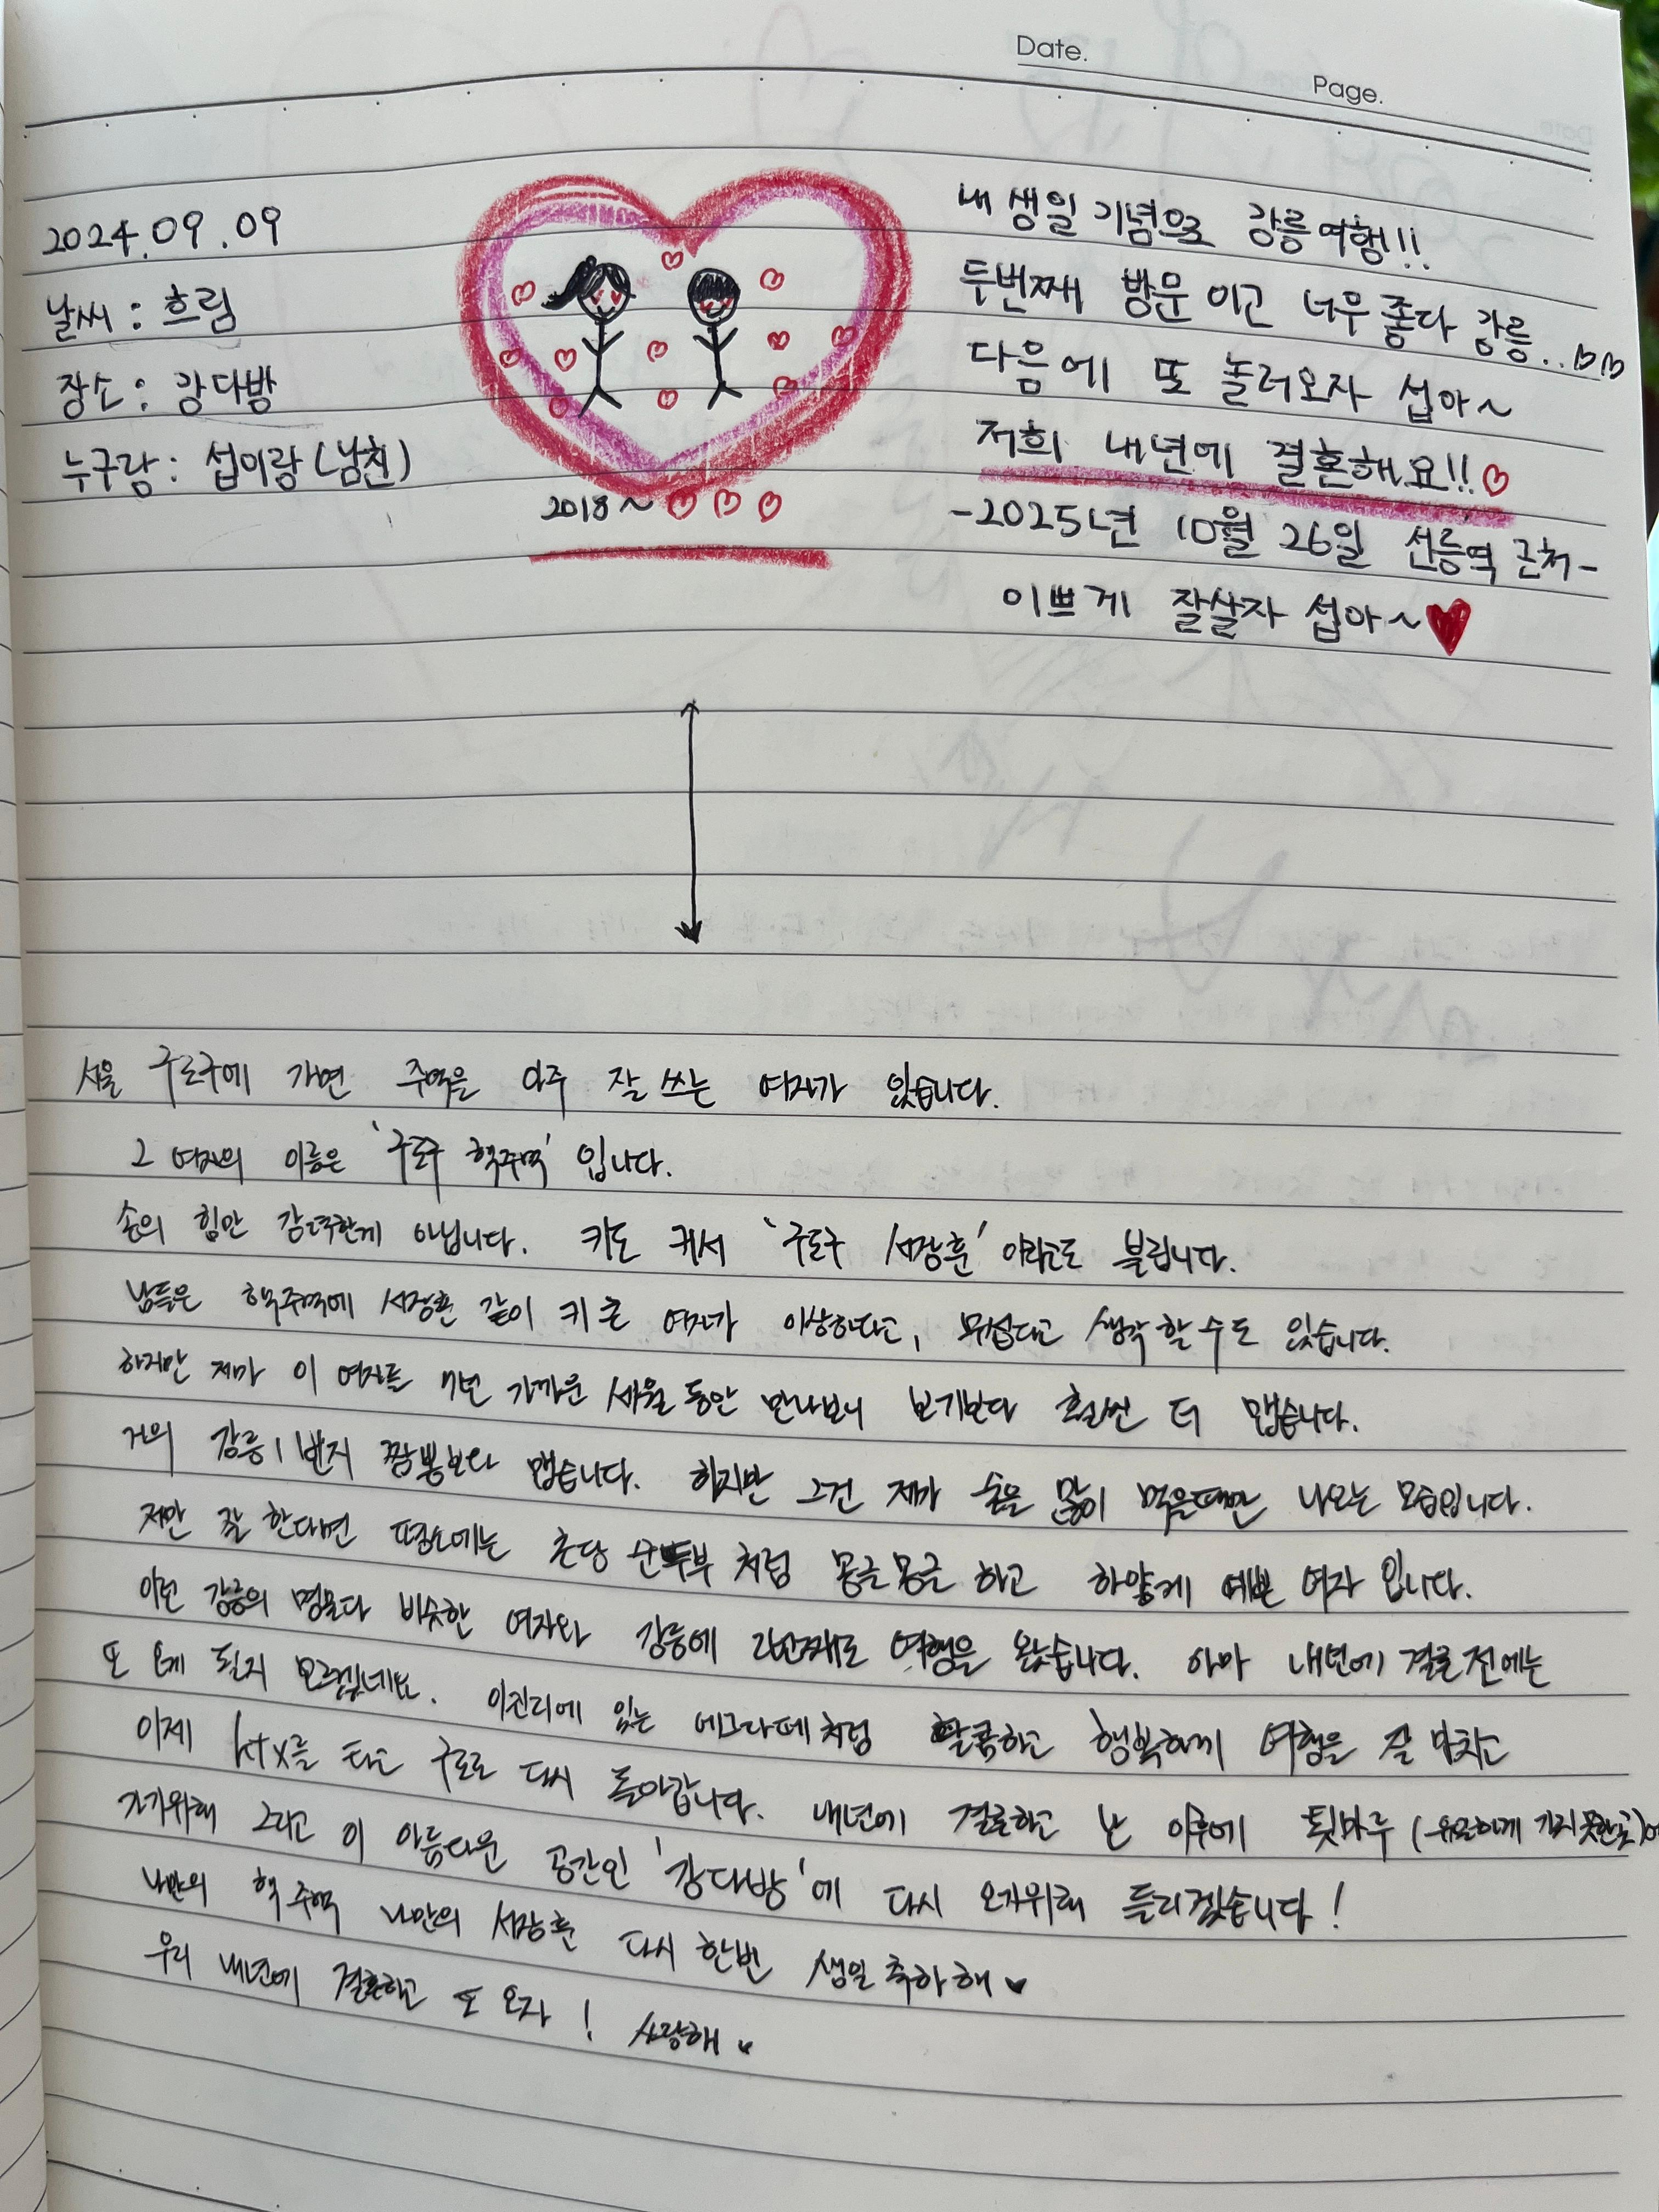 Date.
Page.
2024.09.09
날씨 : 흐림
장소 : 강다방
누구랑 : 섭이랑 (남친)
2018 ~
내 생일 기념으로 강릉여행!!
두번째 방문이고 너무 좋다 강릉..
다음에 또 놀러오자 섭아~
저희 내년에 결혼해요!!
-2025년 10월 26일 선릉역 근처-
이쁘게 잘살자 섭아~
서울 구로구에 가면 주먹을 아주 잘 쓰는 여자가 있습니다.
그 여자의 이름은 '구로구 핵주먹' 입니다.
손의 힘만 강력한게 아닙니다. 키도 커서 '구로구 서장훈' 이라고도 불립니다.
남들은 핵주먹에 서장훈 같이 키 큰 여자가 이상하다고, 무섭다고 생각 할 수도 있습니다.
하지만 제가 이 여자를 7년 가까운 세월 동안 만나보니 보기보다 훨씬 더 맵습니다.
거의 강릉 1번지 짬뽕보다 맵습니다. 하지만 그건 제가 술을 많이 먹을때만 나오는 모습입니다.
저만 잘 한다면 평소에는 초당 순두부 처럼 몽글몽글 하고 하얗게 예쁜 여자 입니다.
이런 강릉의 명물과 비슷한 여자와 강릉에 2번째로 여행을 왔습니다. 아마 내년에 결혼 전에는
또 오게 될지 모르겠네요. 이진리에 있는 에그타르트처럼 달콤하고 행복하게 여행을 잘 마치고
이제 ktx를 타고 구로로 다시 돌아갑니다. 내년에 결혼하고 난 이후에 툇마루 (유일하게 가지 못한곳)에
가기위해 그리고 이 아름다운 공간인 '강다방'에 다시 오기위해 들리겠습니다!
나만의 핵주먹 나만의 서장훈 다시 한번 생일 축하해
우리 내년에 결혼하고 또 오자! 사랑해